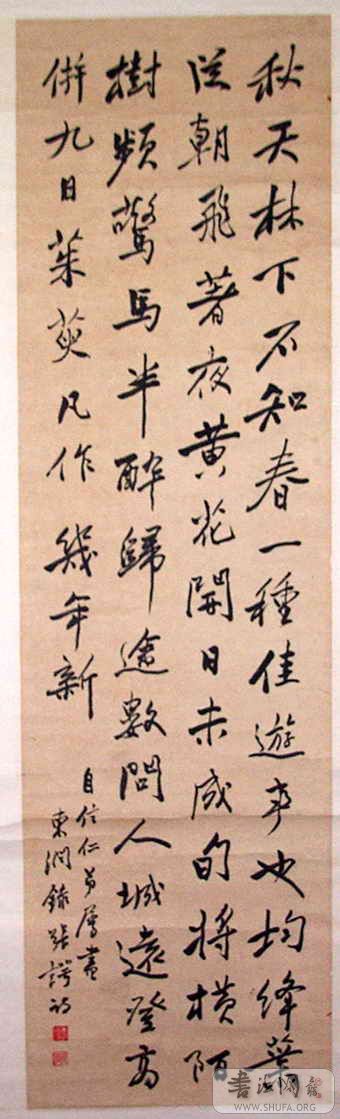 秋天林下不知春一種佳遊事也均絳葉
從朝飛著夜黄花開日未成旬將横陌
樹頻驚馬半醉歸途數問人城遠登高
併九日茱萸凡作幾年新
自信仁弟属書
東澗錄張諤詩
WWW.SHUFA.ORG